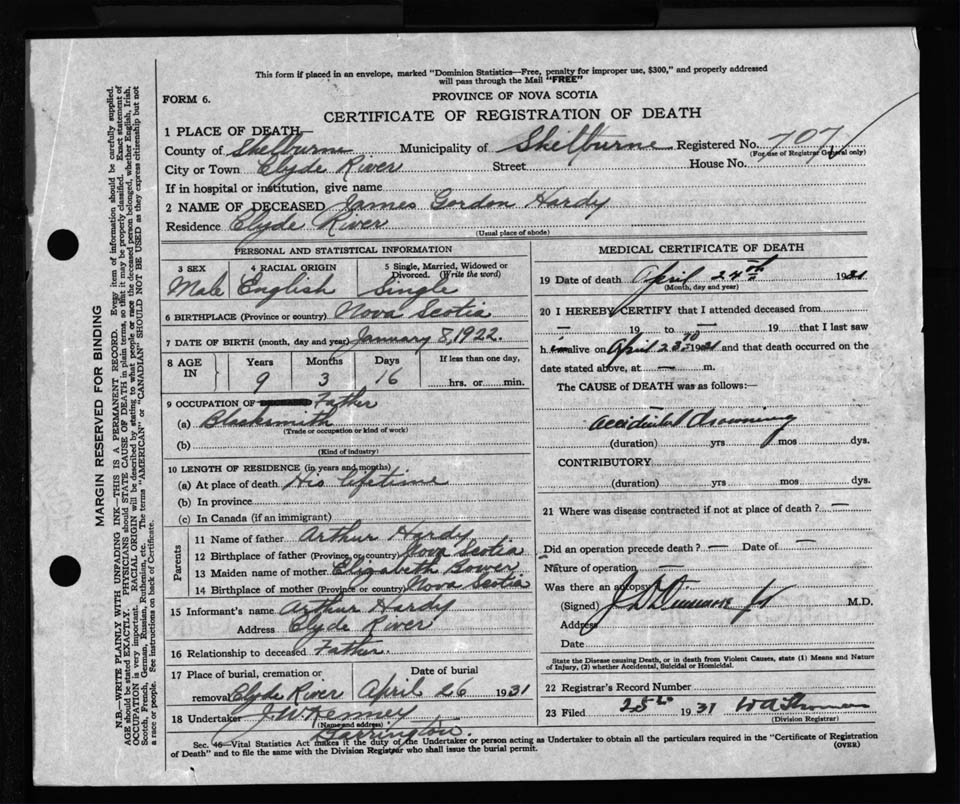 This form if placed in an envelope, marked "Dominion Statistics—Free, penalty for improper use, $300," and properly addressed
will pass through the Mail "FREE"
FORM 6.
PROVINCE OF NOVA SCOTIA
CERTIFICATE OF REGISTRATION OF DEATH
1 PLACE OF DEATH—
County of Shelburne Municipality of Shelburne Registered No. 707
(For use of Registrar General only)
City or Town Clyde River Street House No.
If in hospital or institution, give name
2 NAME OF DECEASED James Gordon Hardy
Residence Clyde River
(Usual place of abode)
PERSONAL AND STATISTICAL INFORMATION
3 SEX 4 RACIAL ORIGIN 5 Single, Married, Widowed or Divorced. (Write the word)
Male English Single
6 BIRTHPLACE (Province or country) Nova Scotia
7 DATE OF BIRTH (month, day and year) January 8, 1922.
8 AGE IN Years Months Days If less than one day,
9 3 16 hrs. or min.
9 OCCUPATION OF Father
(a) Blacksmith
(Trade or occupation or kind of work)
(b)
(Kind of industry)
10 LENGTH OF RESIDENCE (in years and months)
(a) At place of death His lifetime
(b) In province
(c) In Canada (if an immigrant)
Parents
11 Name of father Arthur Hardy
12 Birthplace of father (Province or country) Nova Scotia
13 Maiden name of mother Elizabeth Bower
14 Birthplace of mother (Province or country) Nova Scotia
15 Informant's name Arthur Hardy
Address Clyde River
16 Relationship to deceased Father.
17 Place of burial, cremation or Date of burial
removal Clyde River April 26 1931
18 Undertaker J. W. Kenney
(Name and address)
Barrington.
MEDICAL CERTIFICATE OF DEATH
19 Date of death April 24th 1931
(Month, day and year)
20 I HEREBY CERTIFY that I attended deceased from
— 19 to — 19 that I last saw
him alive on April 23rd 1931 and that death occurred on the
date stated above, at — m.
The CAUSE of DEATH was as follows:—
accidental drowning
(duration) yrs mos dys.
CONTRIBUTORY
(duration) yrs. mos. dys.
21 Where was disease contracted if not at place of death? —
Did an operation precede death? — Date of —
Nature of operation —
Was there an autopsy?
(Signed) M.D.
Address
Date
State the Disease causing Death, or in death from Violent Causes, state (1) Means and Nature
of Injury, (2) whether Accidental, Suicidal or Homicidal.
22 Registrar's Record Number
23 Filed 25th 1931
(Division Registrar)
Sec. 46—Vital Statistics Act makes it the duty of the Undertaker or person acting as Undertaker to obtain all the particulars required in the "Certificate of Registration
of Death" and to file the same with the Division Registrar who shall issue the burial permit.
(OVER)
MARGIN RESERVED FOR BINDING
N.B.—WRITE PLAINLY WITH UNFADING INK—THIS IS A PERMANENT RECORD. Every item of information should be carefully supplied.
AGE should be stated EXACTLY. PHYSICIANS should STATE CAUSE OF DEATH in plain terms, so that it may be properly classified. Exact statement of
OCCUPATION is very important. RACIAL ORIGIN will be described by stating to what people or race the deceased person belonged, whether English, Irish,
Scotch, French, German, Russian, Ruthenian, etc. The terms "AMERICAN" or "CANADIAN" SHOULD NOT BE USED as they express citizenship but not
a race or people. See instructions on back of Certificate.